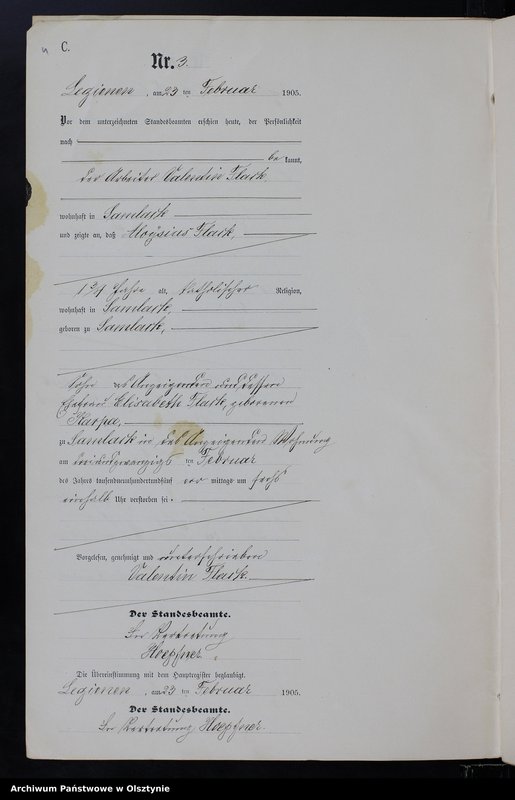 C.
Nr. 3.
Legienen, am 23 ten Februar 1905.
Vor dem unterzeichneten Standesbeamten erschien heute, der Persönlichkeit
nach
be kannt,
der Arbeiter Valentin Flark
wohnhaft in Samlack
und zeigte an, daß Aloysius Flark,
1 3/4 Jahre alt, katholischer Religion,
wohnhaft in Samlack,
geboren zu Samlack,
Sohn des Anzeigenden und dessen
Ehefrau Elisabeth Flark, geborenen
Skarpa,
zu Samlack in des Anzeigenden Wohnung
am dreiundzwanzigs ten Februar
des Jahres tausendneunhundertundfünf vor mittags um sechs
einhalb Uhr verstorben sei.
Vorgelesen, genehmigt und unterschrieben
Valentin Flark.
Der Standesbeamte.
In Vertretung
Hoepfner.
Die Übereinstimmung mit dem Hauptregister beglaubigt.
Legienen, am 23 ten Februar 1905.
Der Standesbeamte.
In Vertretung Hoepfner.
Archiwum Państwowe w Olsztynie